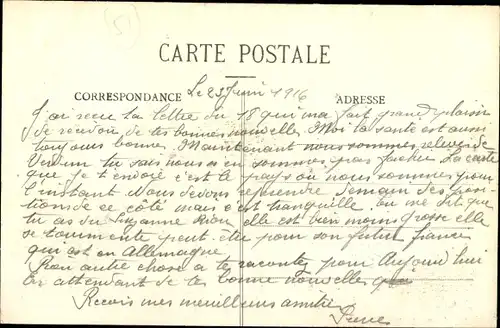 51
CARTE POSTALE
CORRESPONDANCE Le 23 Juin 1916 ADRESSE
J'ai recu ta lettre du 18 qui ma fait grand plaisir
de recevoir de tes bonnes nouvelle. Moi la santé est aussi
toujours bonne. Maintenant nous sommes relevés de
Verdun tu sais nous en sommes pas facher. La carte
que je t'envoie c'est le pays où nous sommes pour
l'instant. Nous devons reprendre demain des posi-
tions de ce côté mais c'est tranquille. on me dit que
tu as du Suzanne Rion, elle est bien moins grosse elle
se tourmente peut-être pour son futur francé
qui est en Allemagne
Rien autre chose a te raconter pour Aujourd'hui
En attendant de tes bonne nouvelles
Recois mes meilleurs amitiés
Pierre